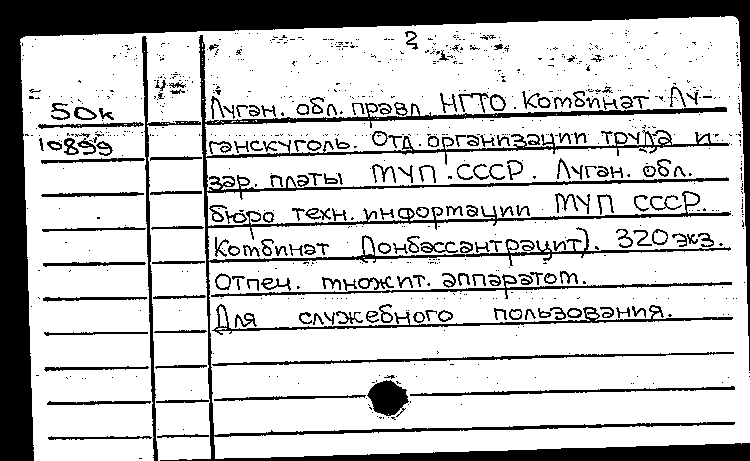 2
50к Луган. обл. правл. НГТО. Комбинат Лу-
10899 ганскуголь. Отд. организации труда и
зар. платы МУП. СССР. Луган. обл.
бюро техн. информации МУП СССР.
Комбинат Донбассантрацит). 320 экз.
Отпеч. множит. аппаратом.
Для служебного пользования.